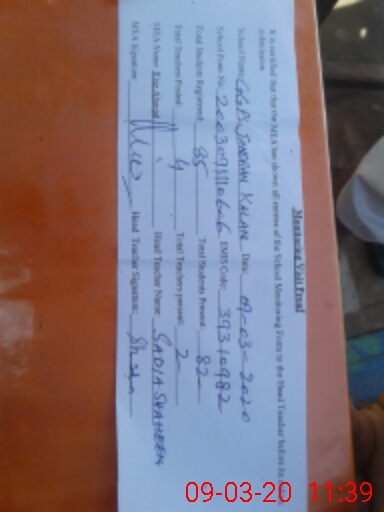 Monitoring Visit Proof
It is certified that the MEA has shown all screens of the School Monitoring Form to the Head Teacher before its
submission
School Name: GGPS JANDRIAN KALAN Date: 09-03-2020
School Form No: EMIS Code: 39310982
Total Students Registered: 85 Total Students Present: 82
Total Teachers Posted: 4 Total Teachers present: 2
MEA Name: Head Teacher Name: SADIA SHAHEEN
MEA Signature: Head Teacher Signature:
09-03-20 11:39